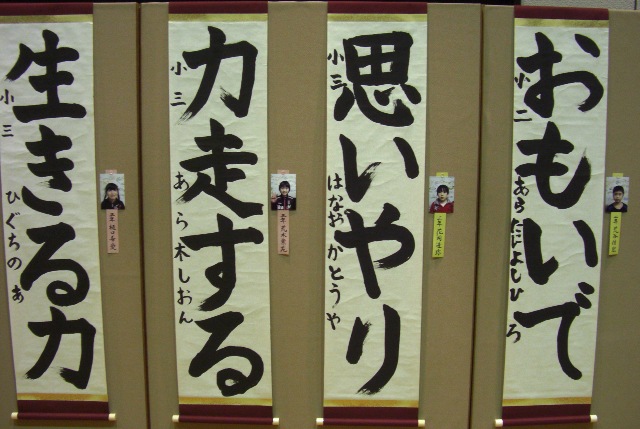 おもいで
小二
あらたによしひろ
思いやり
小三
はなおかとうや
力走する
小三
あら木しおん
生きる力
小三
ひぐちのあ